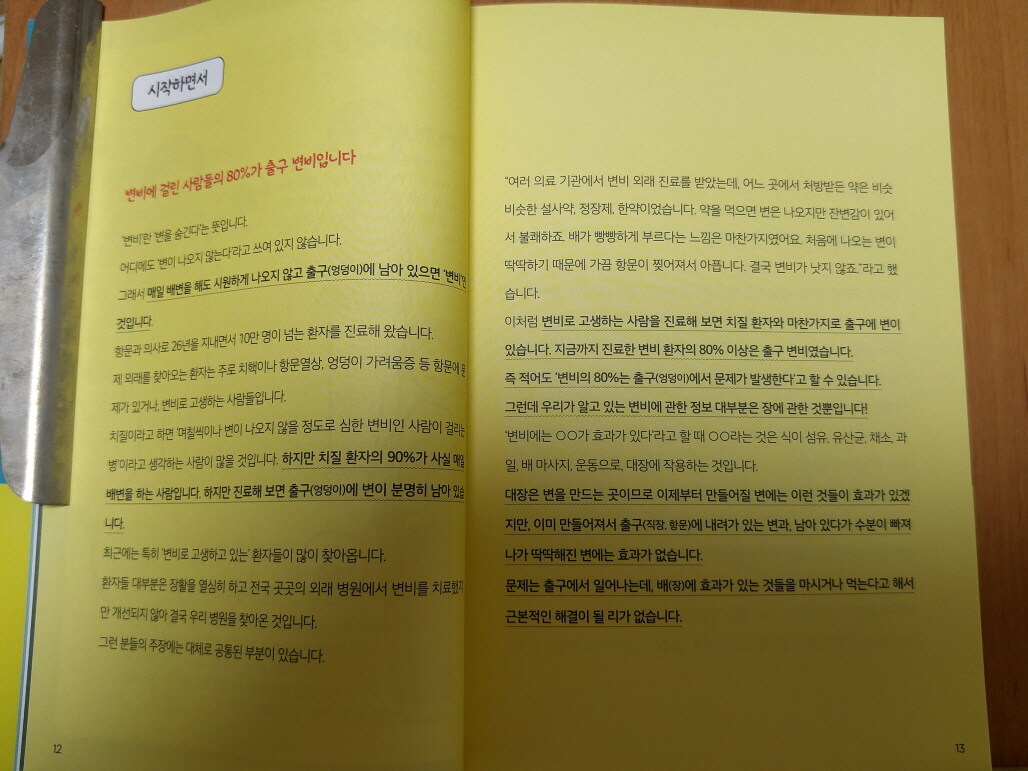 시작하면서
변비에 걸린 사람들의 80%가 출구 변비입니다
'변비'란 '변을 숨긴다'는 뜻입니다.
어디에도 '변이 나오지 않는다'라고 쓰여 있지 않습니다.
그래서 매일 배변을 해도 시원하게 나오지 않고 출구(엉덩이)에 남아 있으면 '변비'인
것입니다.
항문과 의사로 26년을 지내면서 10만 명이 넘는 환자를 진료해 왔습니다.
제 외래를 찾아오는 환자는 주로 치핵이나 항문열상, 엉덩이 가려움증 등 항문에 문
제가 있거나, 변비로 고생하는 사람들입니다.
치질이라고 하면 '며칠씩이나 변이 나오지 않을 정도로 심한 변비인 사람이 걸리는
병'이라고 생각하는 사람이 많을 것입니다. 하지만 치질 환자의 90%가 사실 매일
배변을 하는 사람입니다. 하지만 진료해 보면 출구(엉덩이)에 변이 분명히 남아 있습
니다.
최근에는 특히 '변비로 고생하고 있는' 환자들이 많이 찾아옵니다.
환자들 대부분은 장활을 열심히 하고 전국 곳곳의 외래 병원에서 변비를 치료했지
만 개선되지 않아 결국 우리 병원을 찾아온 것입니다.
그런 분들의 주장에는 대체로 공통된 부분이 있습니다.
12
"여러 의료 기관에서 변비 외래 진료를 받았는데, 어느 곳에서 처방받든 약은 비슷
비슷한 설사약, 정장제, 한약이었습니다. 약을 먹으면 변은 나오지만 잔변감이 있어
서 불쾌하죠. 배가 빵빵하게 부르다는 느낌은 마찬가지였어요. 처음에 나오는 변이
딱딱하기 때문에 가끔 항문이 찢어져서 아픕니다. 결국 변비가 낫지 않죠."라고 했
습니다.
이처럼 변비로 고생하는 사람을 진료해 보면 치질 환자와 마찬가지로 출구에 변이
있습니다. 지금까지 진료한 변비 환자의 80% 이상은 출구 변비였습니다.
즉 적어도 '변비의 80%는 출구(엉덩이)에서 문제가 발생한다'고 할 수 있습니다.
그런데 우리가 알고 있는 변비에 관한 정보 대부분은 장에 관한 것뿐입니다!
'변비에는 ○○가 효과가 있다'라고 할 때 ○○라는 것은 식이 섬유, 유산균, 채소, 과
일, 배 마사지, 운동으로, 대장에 작용하는 것입니다.
대장은 변을 만드는 곳이므로 이제부터 만들어질 변에는 이런 것들이 효과가 있겠
지만, 이미 만들어져서 출구(직장, 항문)에 내려가 있는 변과, 남아 있다가 수분이 빠져
나가 딱딱해진 변에는 효과가 없습니다.
문제는 출구에서 일어나는데, 배(장)에 효과가 있는 것들을 마시거나 먹는다고 해서
근본적인 해결이 될 리가 없습니다.
13